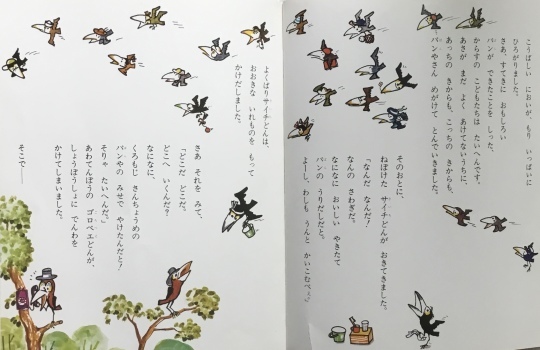 こうばしい においが、もり いっぱいに
ひろがりました。
さあ、すてきに おもしろい
パンが できたことを しった、
からすの こどもたちは たいへんです。
あさが まだ よく あけてないうちに、
あっちの きからも、こっちの きからも、
パンやさん めがけて とんでいきました。
そのおとに、
ねぼけた サイチどんが おきてきました。
「なんだ なんだ！
なんの さわぎだ。
なになに おいしい やきたて
パンの うりだしだと。
よーし わしも うんと かいこむべえ。」
よくばりサイチどんは、
おおきな いれものを もって
かけだしました。
さあ それを みて、
「どこだ どこだ。
どこへ いくんだ？
なになに、
くろもじ さんちょうめの
パンやの みせで やけたんだと！
そりゃ たいへんだ。」
あわてんぼうの ゴロベエどんが、
しょうぼうしょに でんわを
かけてしまいました。
そこで――